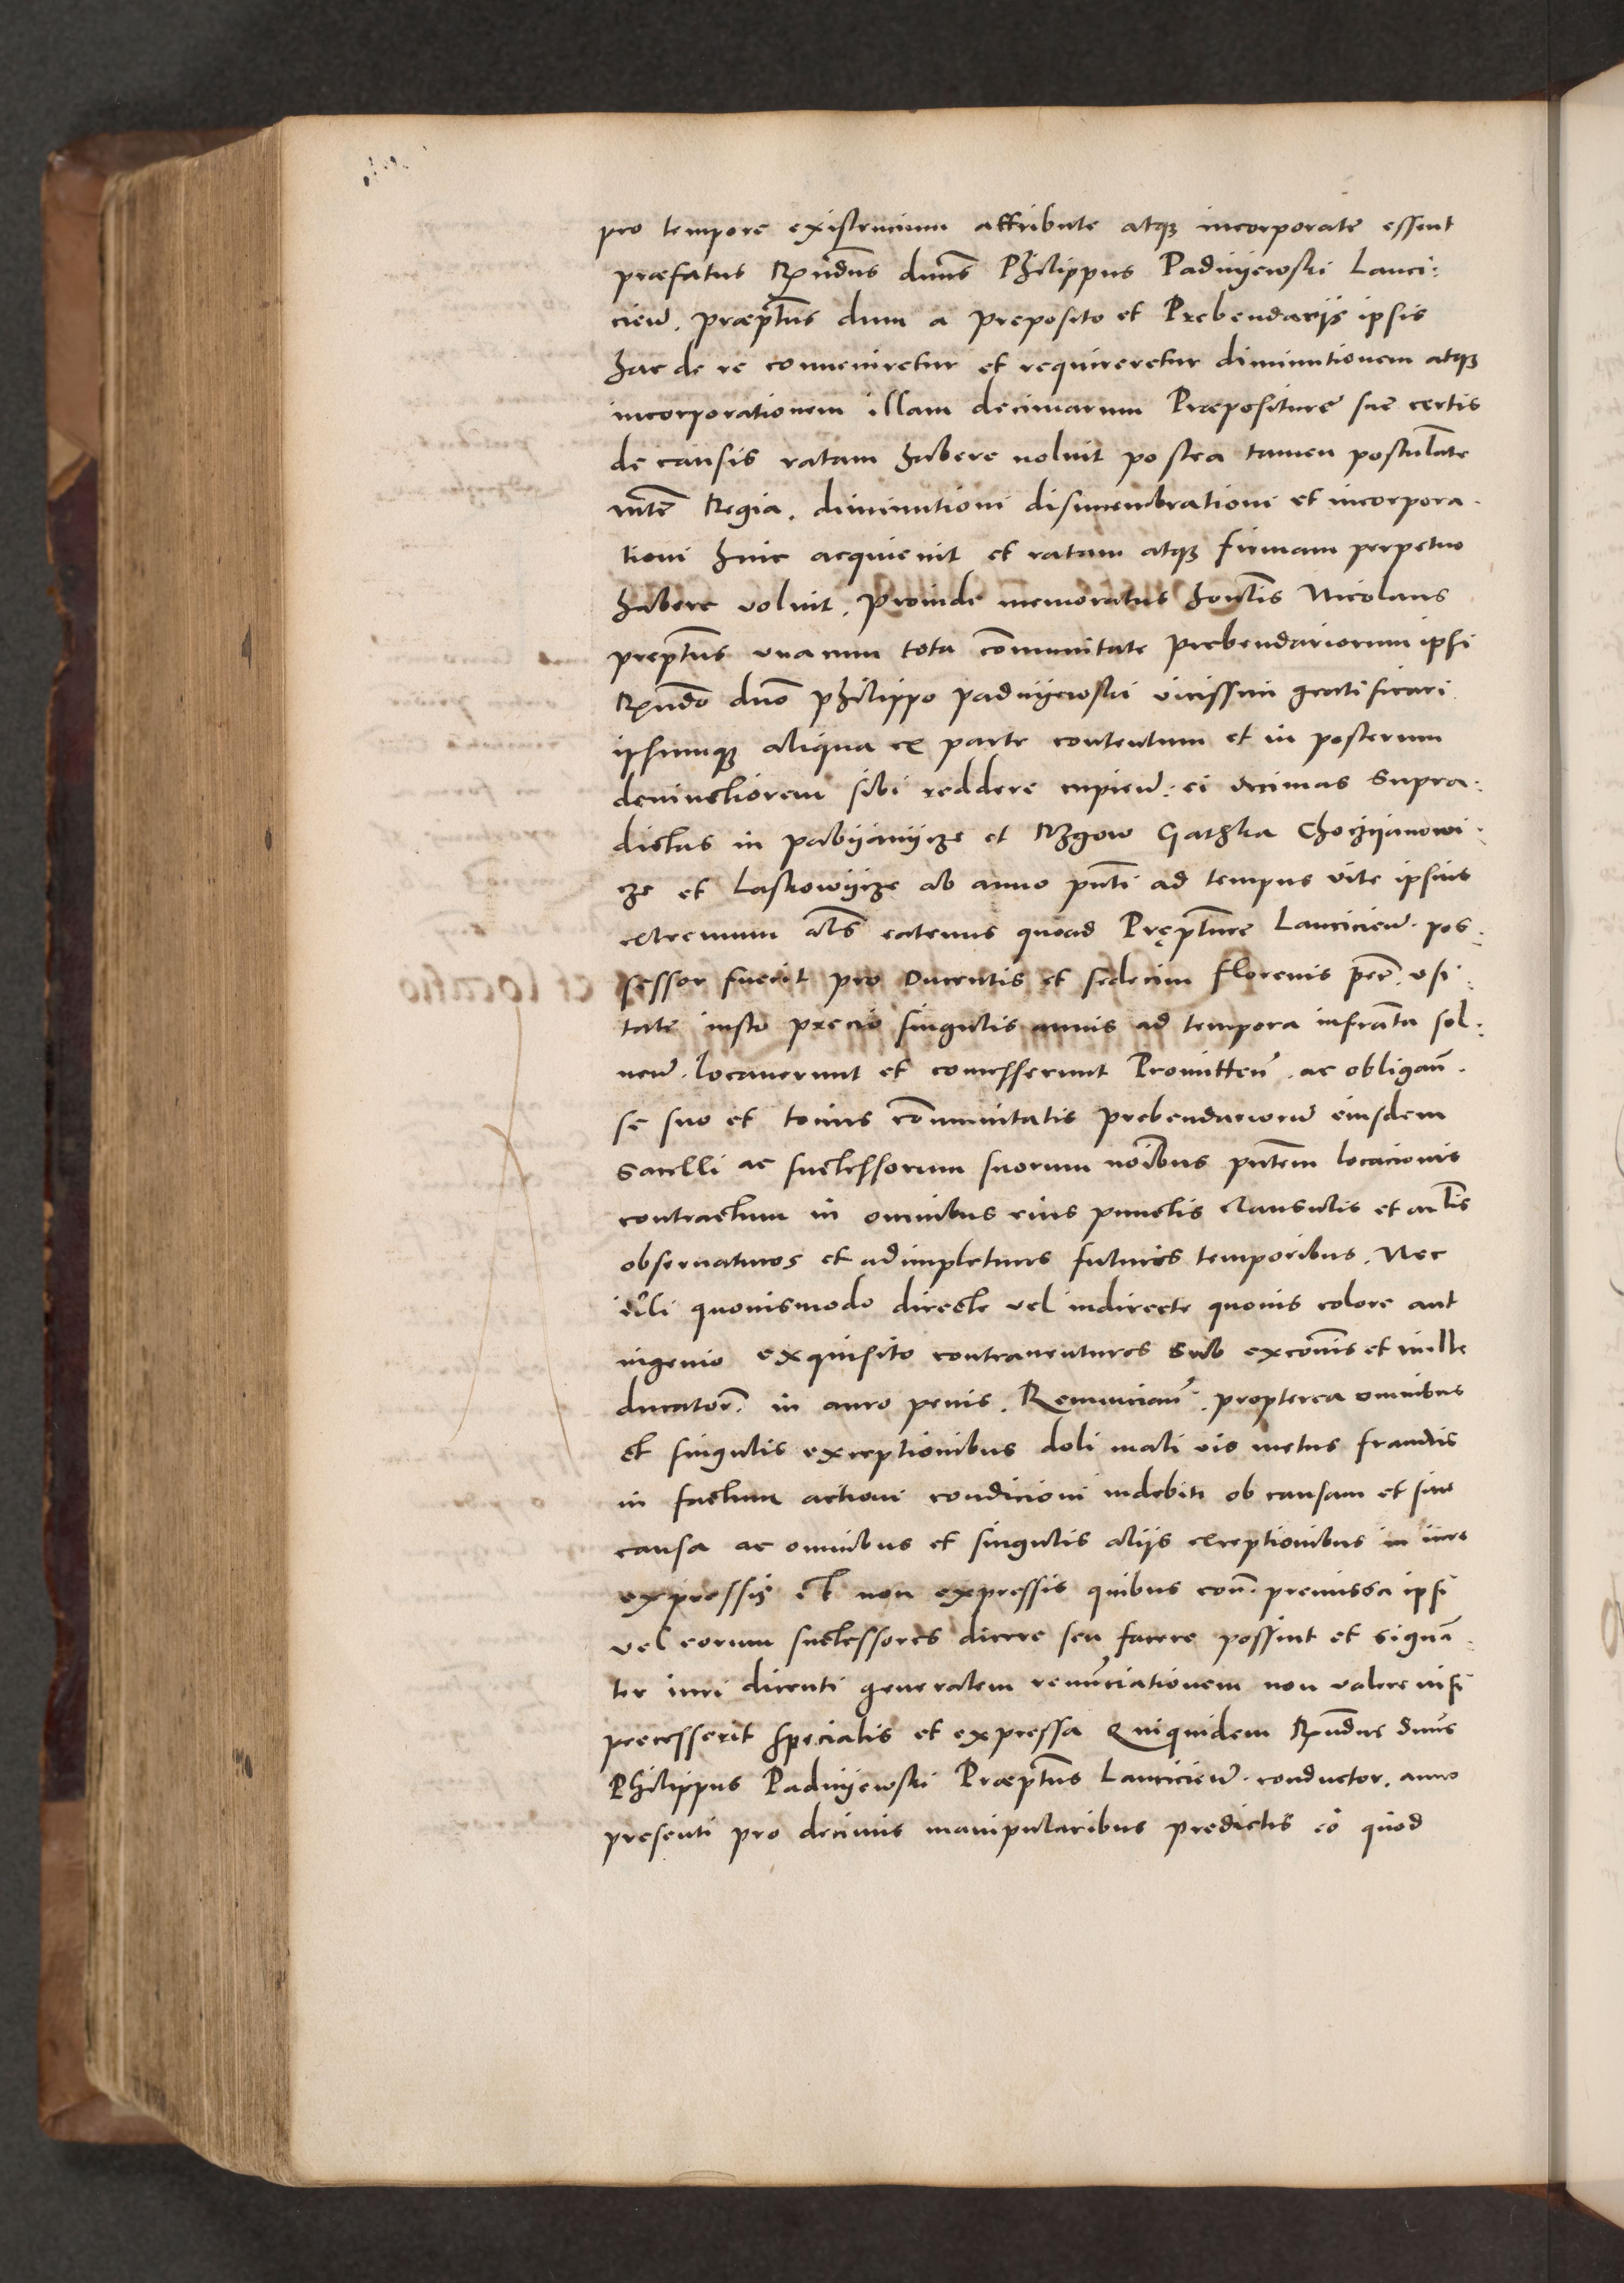 pro tempore existencium attribute atqꝫ incorporate essent
præfatus Rṇdus dnus Philippus Padnijewski Lanci:
cien̄. præptus dum a preposito et Prebendarijs ipsis
hac de re conueniretur et requireretur diminutionem atqꝫ
incorporationem illam decimarum Præpositure sue certis
de causis ratam habere noluit postea tamen postulate
mte Regia. diminutioni dismembrationi et incorpora.
tioni huic acquieuit et ratam atqꝫ firmam perpetuo
habere voluit. Proinde memoratus honlis Nicolaus
preptus vna cum tota comunitate prebendariorum ipsi
Rndo dno philippo padnijewski vicissim gratificari
ipsumqꝫ aliqua ex parte contentum et in posterum
deuinctiorem sibi reddere cupien̄. ei decimas supra.
dictas in pabijanijcze et Rzgow Gathka Choczijanowi.
cze et Laskowijcze ab anno pnti ad tempus vite ipsius
extremum als eatenus quoad Prępture Lancicien̄. pos:
sessor fuerit pro Ducentis et sedecim florenis pec. vsi:
tate iusto precio singulis annis ad tempora infrasta sol:
uen̄. locauerunt et concesserunt Promitten̄. ac obligan̄.
se suo et tocius comunitatis prebendarioru eiusdem
Sacelli ac successorum suorum noibus pntem locacionis
contractum in omnibus eius punctis clausulis et artlis
obseruaturos et adimpleturos futuris temporibus. Nec
illi quouismodo directe vel indirecte quouis colore aut
ingenio exquisito contrauenturos sub excois et mille
ducator. in auro penis. Renuncian̄. propterea omnibus
et singulis exceptionibus doli mali vis metus fraudis
in factum actioni condicioni indebiti ob causam et sine
causa ac omnibus et singulis alijs exceptionibus in iure
expressis et non expressis quibus con. premissa ipsi
vel eorum successores dicere seu facere possint et signan:
ter iuri dicenti generalem renunciationem non valere nisi
precesserit specialis et expressa Quiquidem Rndus dnus
Philippus Padnijewski Præptus Lancicien̄. conductor. anno
presenti pro decimis manipularibus predictis eo quod